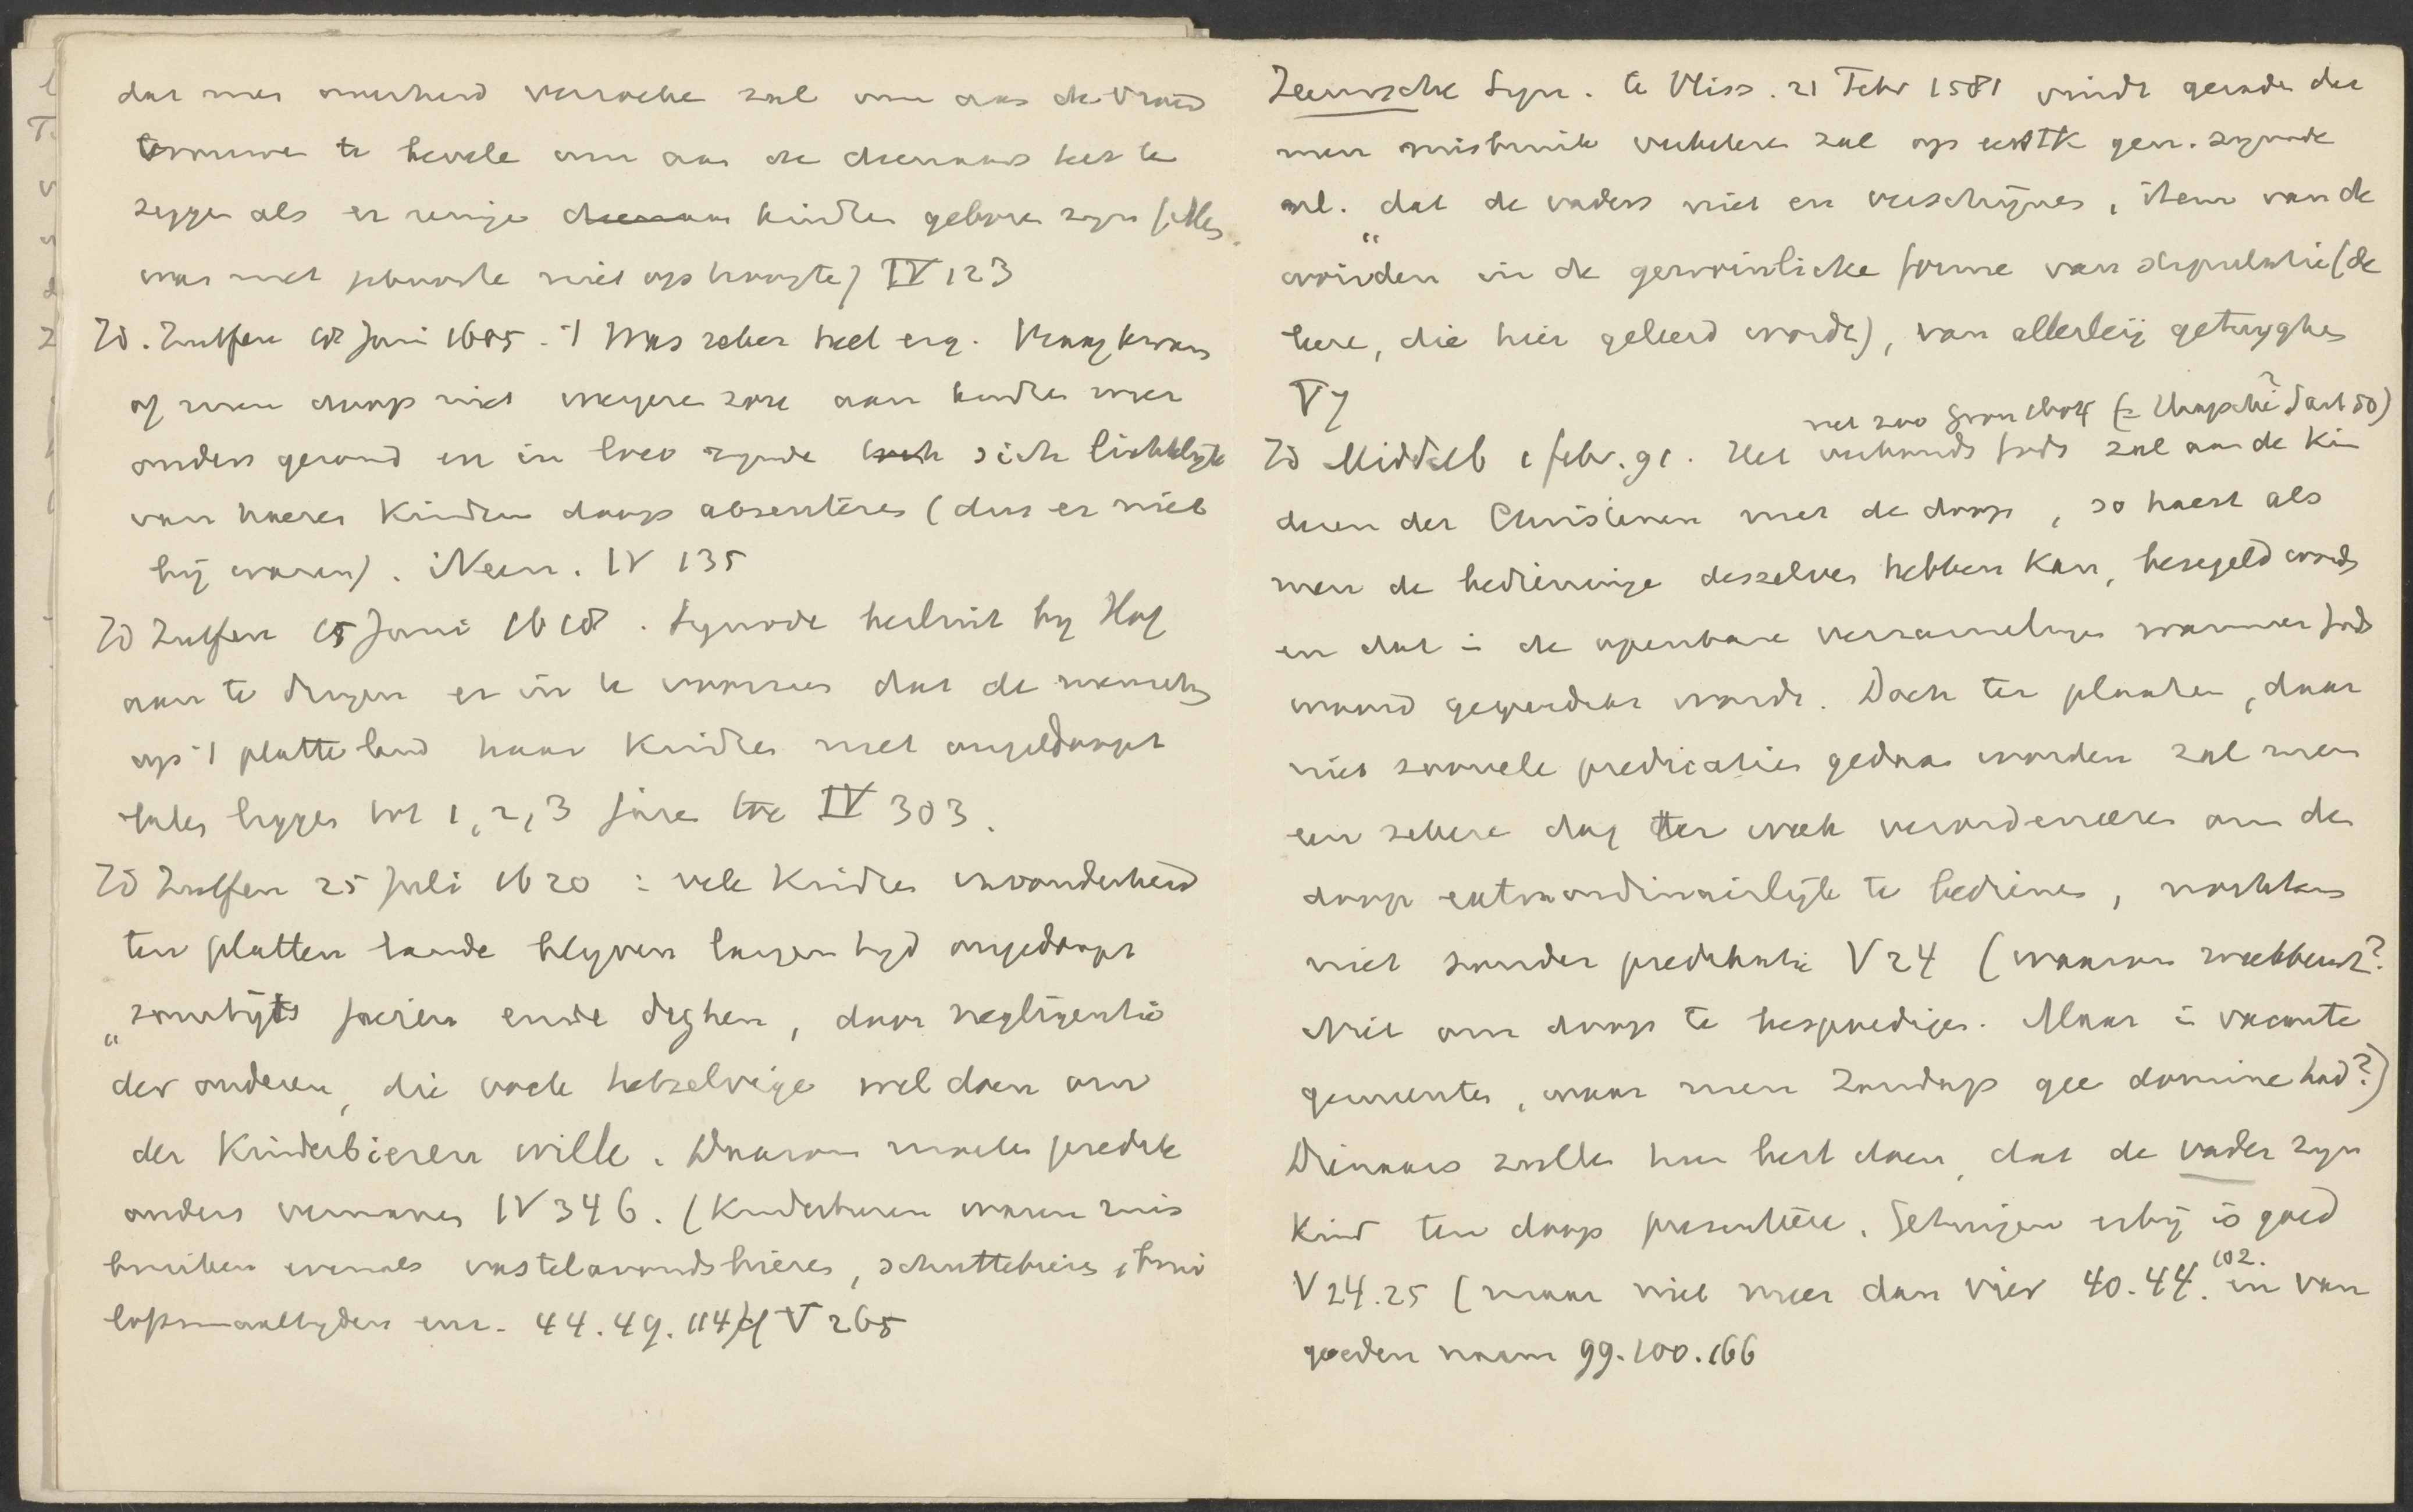 dat men overheid verzoeken zal om aan de vroed
vrouwen te bevele om aan de dienaars het te
zeggen als er eenige dienaar kindren geboren zyn (Men
was met geboorte niet op hoogte) IV 123
Id. Zutfen 18 Juni 1605. 't Was zeker heel erg. Vraag kwam
of men doop niet weigeren zou aan kindren wier
ouders gezond en in loco zynde sich lichtelyk
van haeren Kindren doop absenteren (dus er niet
bij waren). Neen. IV 135
Id Zutfen 15 Juni 1618. Synode besluit by Hof
aan te dringen er in te voorzien dat de menschen
op 't platte land haar Kindren niet ongedoopt
laten liggen tot 1, 2, 3 jaren toe IV 303.
Id Zutfen 25 Juli 1620: vele Kindren invonderheid
ten platten lande blyven langen tyd ongedoopt
„somtijts jaeren ende daghen, door negligentie
der ouderen, die oock hetzelvige wel doen om
der Kinderbieren wille. Daarom moeten predik
anders vermanen IV 346. (Kinderbieren waren mis
bruiken evenals vastelavondsbieren, schuttebieren, brui
loftsmaaltyden enz. 44. 49. 114 V 265
Zeeuwsche Syn. te Vliss. 21 Febr 1581 vindt geraden dat
men misbruik verbeteren zal op gen. synode
nl. „dat de vaders niet en verschijnen, item van de
woirden in de gewoinlicke forme van stipulatie (de
leere, die hier geleerd wordt), van allerleij getuyghen
V 7
net zoo Gron 1404 (= Utrechtsche? art 50)
Id Middelb 1 febr. 91. Het verbonds Gods zal aan de Kin
deren der Christenen met de doop, so haest als
men de bedieninge desselves hebben Kan, besegeld words
en dat in de openbare versamelinge wanneer Gods
woord gepredickt wordt. Doch ter plaatsen, daar
niet zoovele predicatien gedaan worden zal men
een sekere dag ter week verordenneeren om den
doop extraordinairlijk te bedienen, nochtans
niet sonder predikatie V 24 (waarom weekbeurt?
Niet om doop te bespoedigen. Maar in vacante
gemeentes, waar men Zondags geen dominé had?)
Dienaars zullen hun best doen, dat de vader zyn
Kind ten doop presenteere. Getuigen erbij is goed
V 24.25 (maar niet meer dan vier 40.44. 102. en van
goeden naam 99.100.166